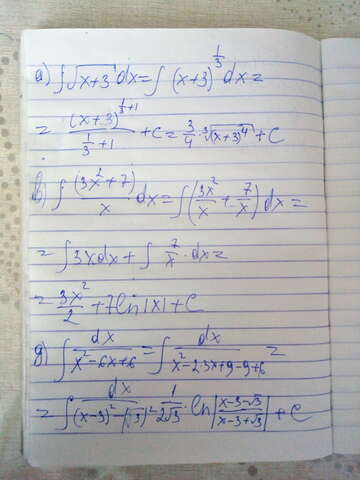 a) ∫√x+3 dx = ∫ (x+3)^(1/3) dx =
= (x+3)^(1/3+1) / (1/3+1) + C = 3/4 · ³√(x+3)⁴ + C
b) ∫ (3x²+7)/x dx = ∫(3x²/x + 7/x) dx =
= ∫3xdx + ∫ 7/x · dx =
= 3x²/2 + 7ln|x| + C
g) ∫ dx/(x²-6x+6) = ∫ dx/(x²-2·3x+9-9+6) =
= ∫ dx/((x-3)²-(√3)² = 1/(2√3) · ln|(x-3-√3)/(x-3+√3)| + C